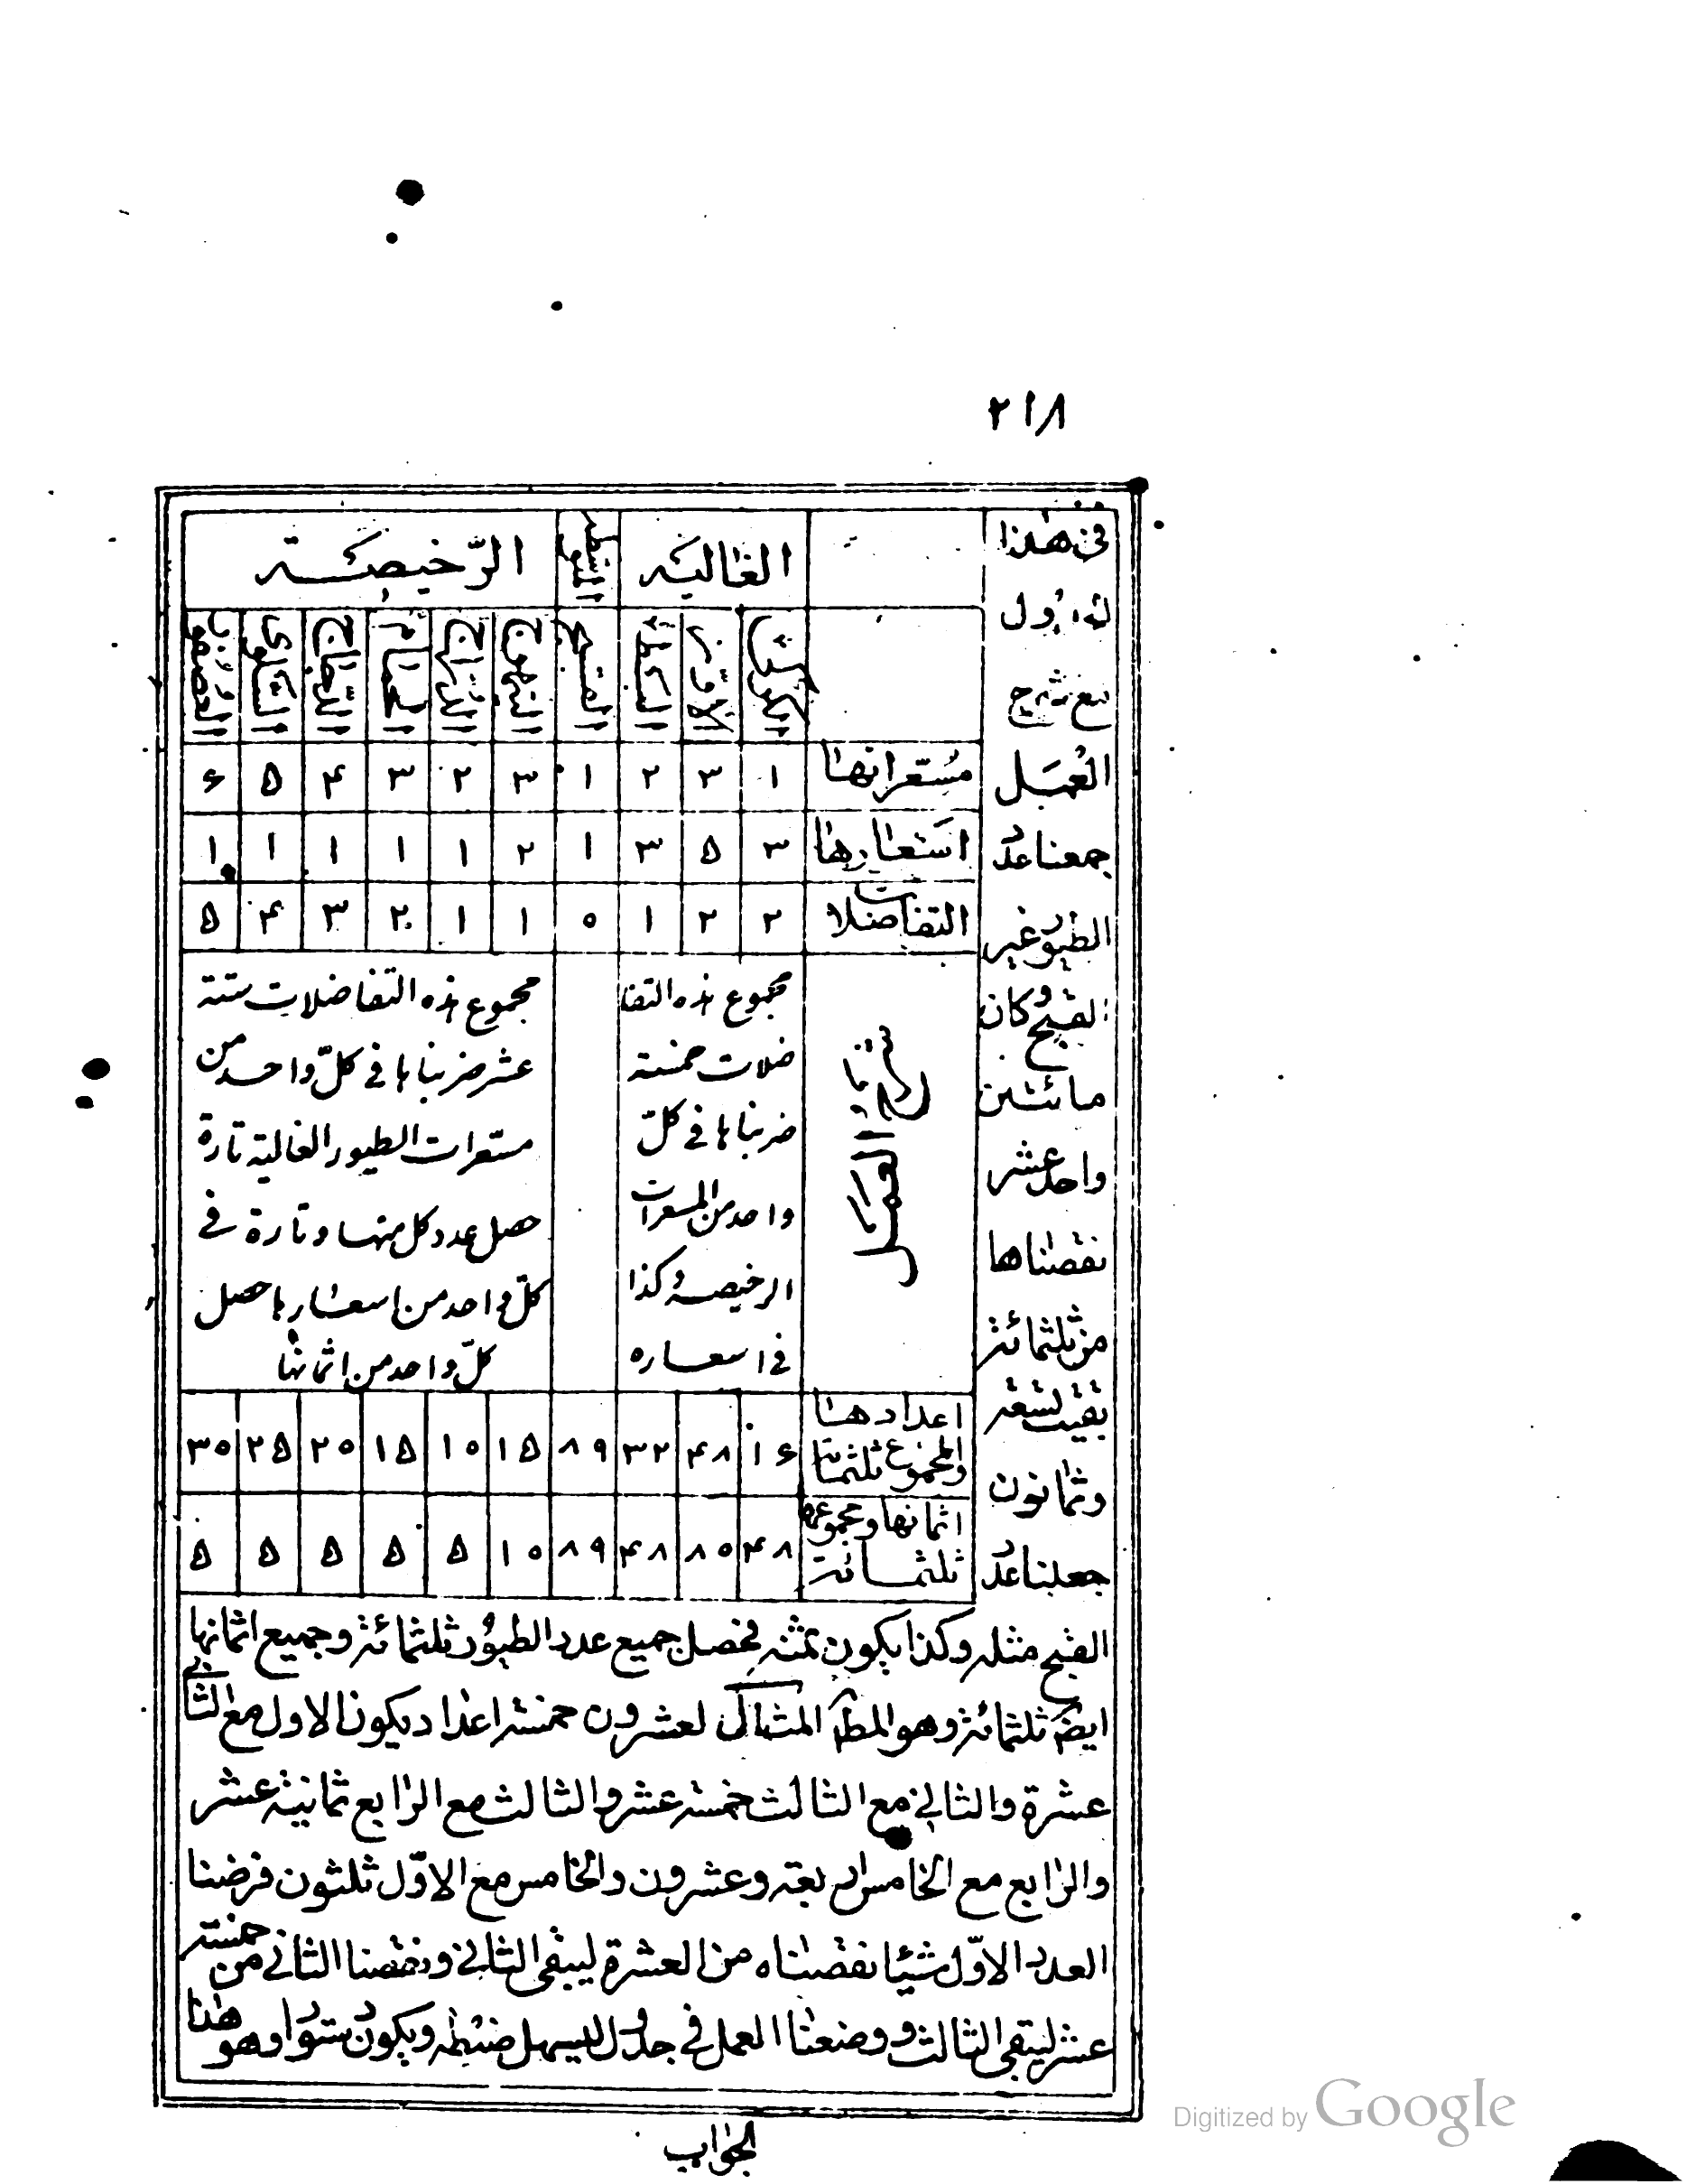 ٢١٨
فى هذا
الجدول
مع شرح
العمل
جمعنا عدد
الطيور غير
القبج وكان
مائتين
واحد عشر
نقصناها
من ثلثمائة
بقيت تسعة
وثمانون
جعلنا عدد
الغالية
المتساوى
الرّخيصة
الاوز
القبج
الحمام
الدراج
مسعراتها ١ ٣ ٢ ١ ٣ ٢ ٣ ۴ ۵ ۶
اسعارها ٣ ۵ ٣ ١ ٢ ١ ١ ١ ١ ١
التفاضلات ٢ ٢ ١ ٠ ١ ١ ٢ ٣ ۴ ۵
شرح العمل
مجموع هذه التفا
ضلات خمسة
ضربناها فى كلّ
واحد من المسعرات
الرخيصة وكذا
فى اسعاره
مجموع هذه التفاضلات ستة
عشر ضربناها فى كلّ واحد من
مسعرات الطيور الغالية تارة
حصل عدد كل منها وتارة فى
كلّ واحد من اسعارها حصل
كلّ واحد من اثمانها
اعدادها
والمجموع ثلثمائة
١۶ ۴٨ ٣٢ ٨٩ ١۵ ١٠ ١۵ ٢٠ ٢۵ ٣٠
اثمانها ومجموعها
ثلثمائة
۴٨ ٨٠ ۴٨ ٨٩ ١٠ ۵ ۵ ۵ ۵ ۵
القبج مثله وكذا يكون ثمنه فحصل جميع عدد الطيور ثلثمائة وجميع اثمانها
ايضا ثلثمائة وهو المط المثال العشرون خمسة اعداد يكون الاول مع الثانى
عشرة والثانى مع الثالث خمسة عشر والثالث مع الرابع ثمانية عشر
والرابع مع الخامس اربعة وعشرون والخامس مع الاوّل ثلثون فرضنا
العدد الاوّل شيئا نقصناه من العشرة ليبقى الثانى ونقصنا الثانى من خمسة
عشر ليبقى الثالث ووضعنا العمل فى جدول ليسهل ضبطه ويكون دستورا وهو هذا
الجواب
Digitized by Google